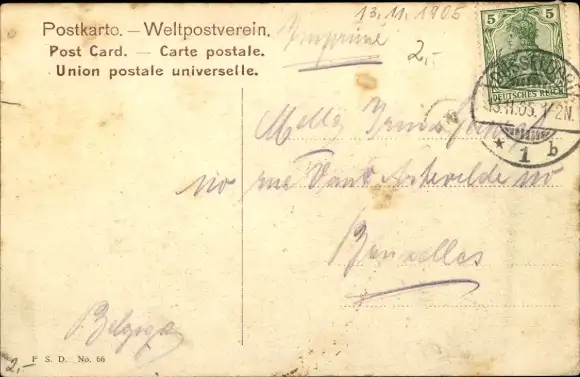 13.11.1905
Postkarte. — Weltpostverein.
Post Card. — Carte postale.
Union postale universelle.
Imprimé
2,-
5 5
DEUTSCHES REICH
DÜSSELDORF
13.11.05. 1-2N.
* 1 b
Melle
rue Artevelde
Bruxelles
Belgique
F S. D. No. 66
2,-